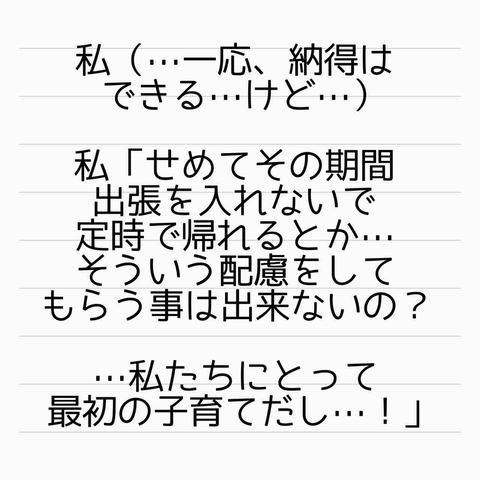 私（…一応、納得は
できる…けど…）
私「せめてその期間
出張を入れないで
定時で帰れるとか…
そういう配慮をして
もらう事は出来ないの？
…私たちにとって
最初の子育てだし…！」